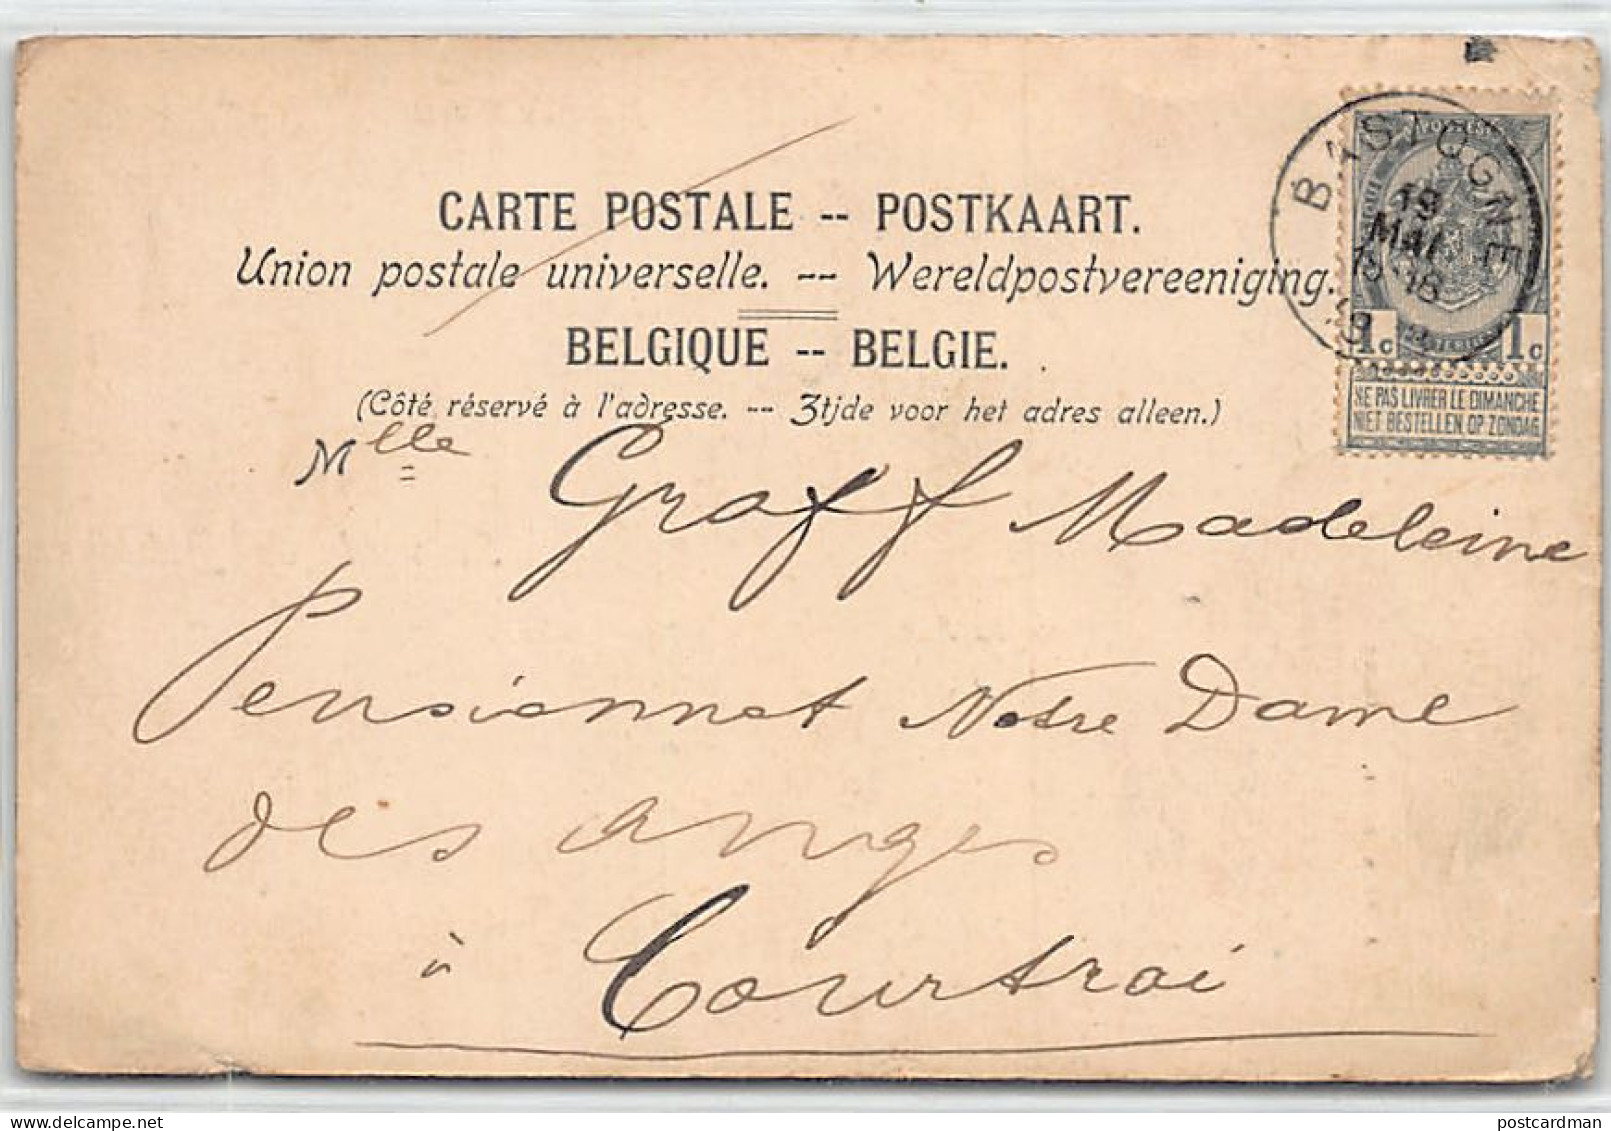 CARTE POSTALE -- POSTKAART.
Union postale universelle. -- Wereldpostvereeniging.
BELGIQUE -- BELGIE.
(Côté réservé à l'adresse. -- Zijde voor het adres alleen.)
BASTOGNE
19
MAI
1c 1c
NE PAS LIVRER LE DIMANCHE
NIET BESTELLEN OP ZONDAG
Mlle Graff Madeleine
Pensionnat Notre Dame
des anges
à Courtrai
postcardman